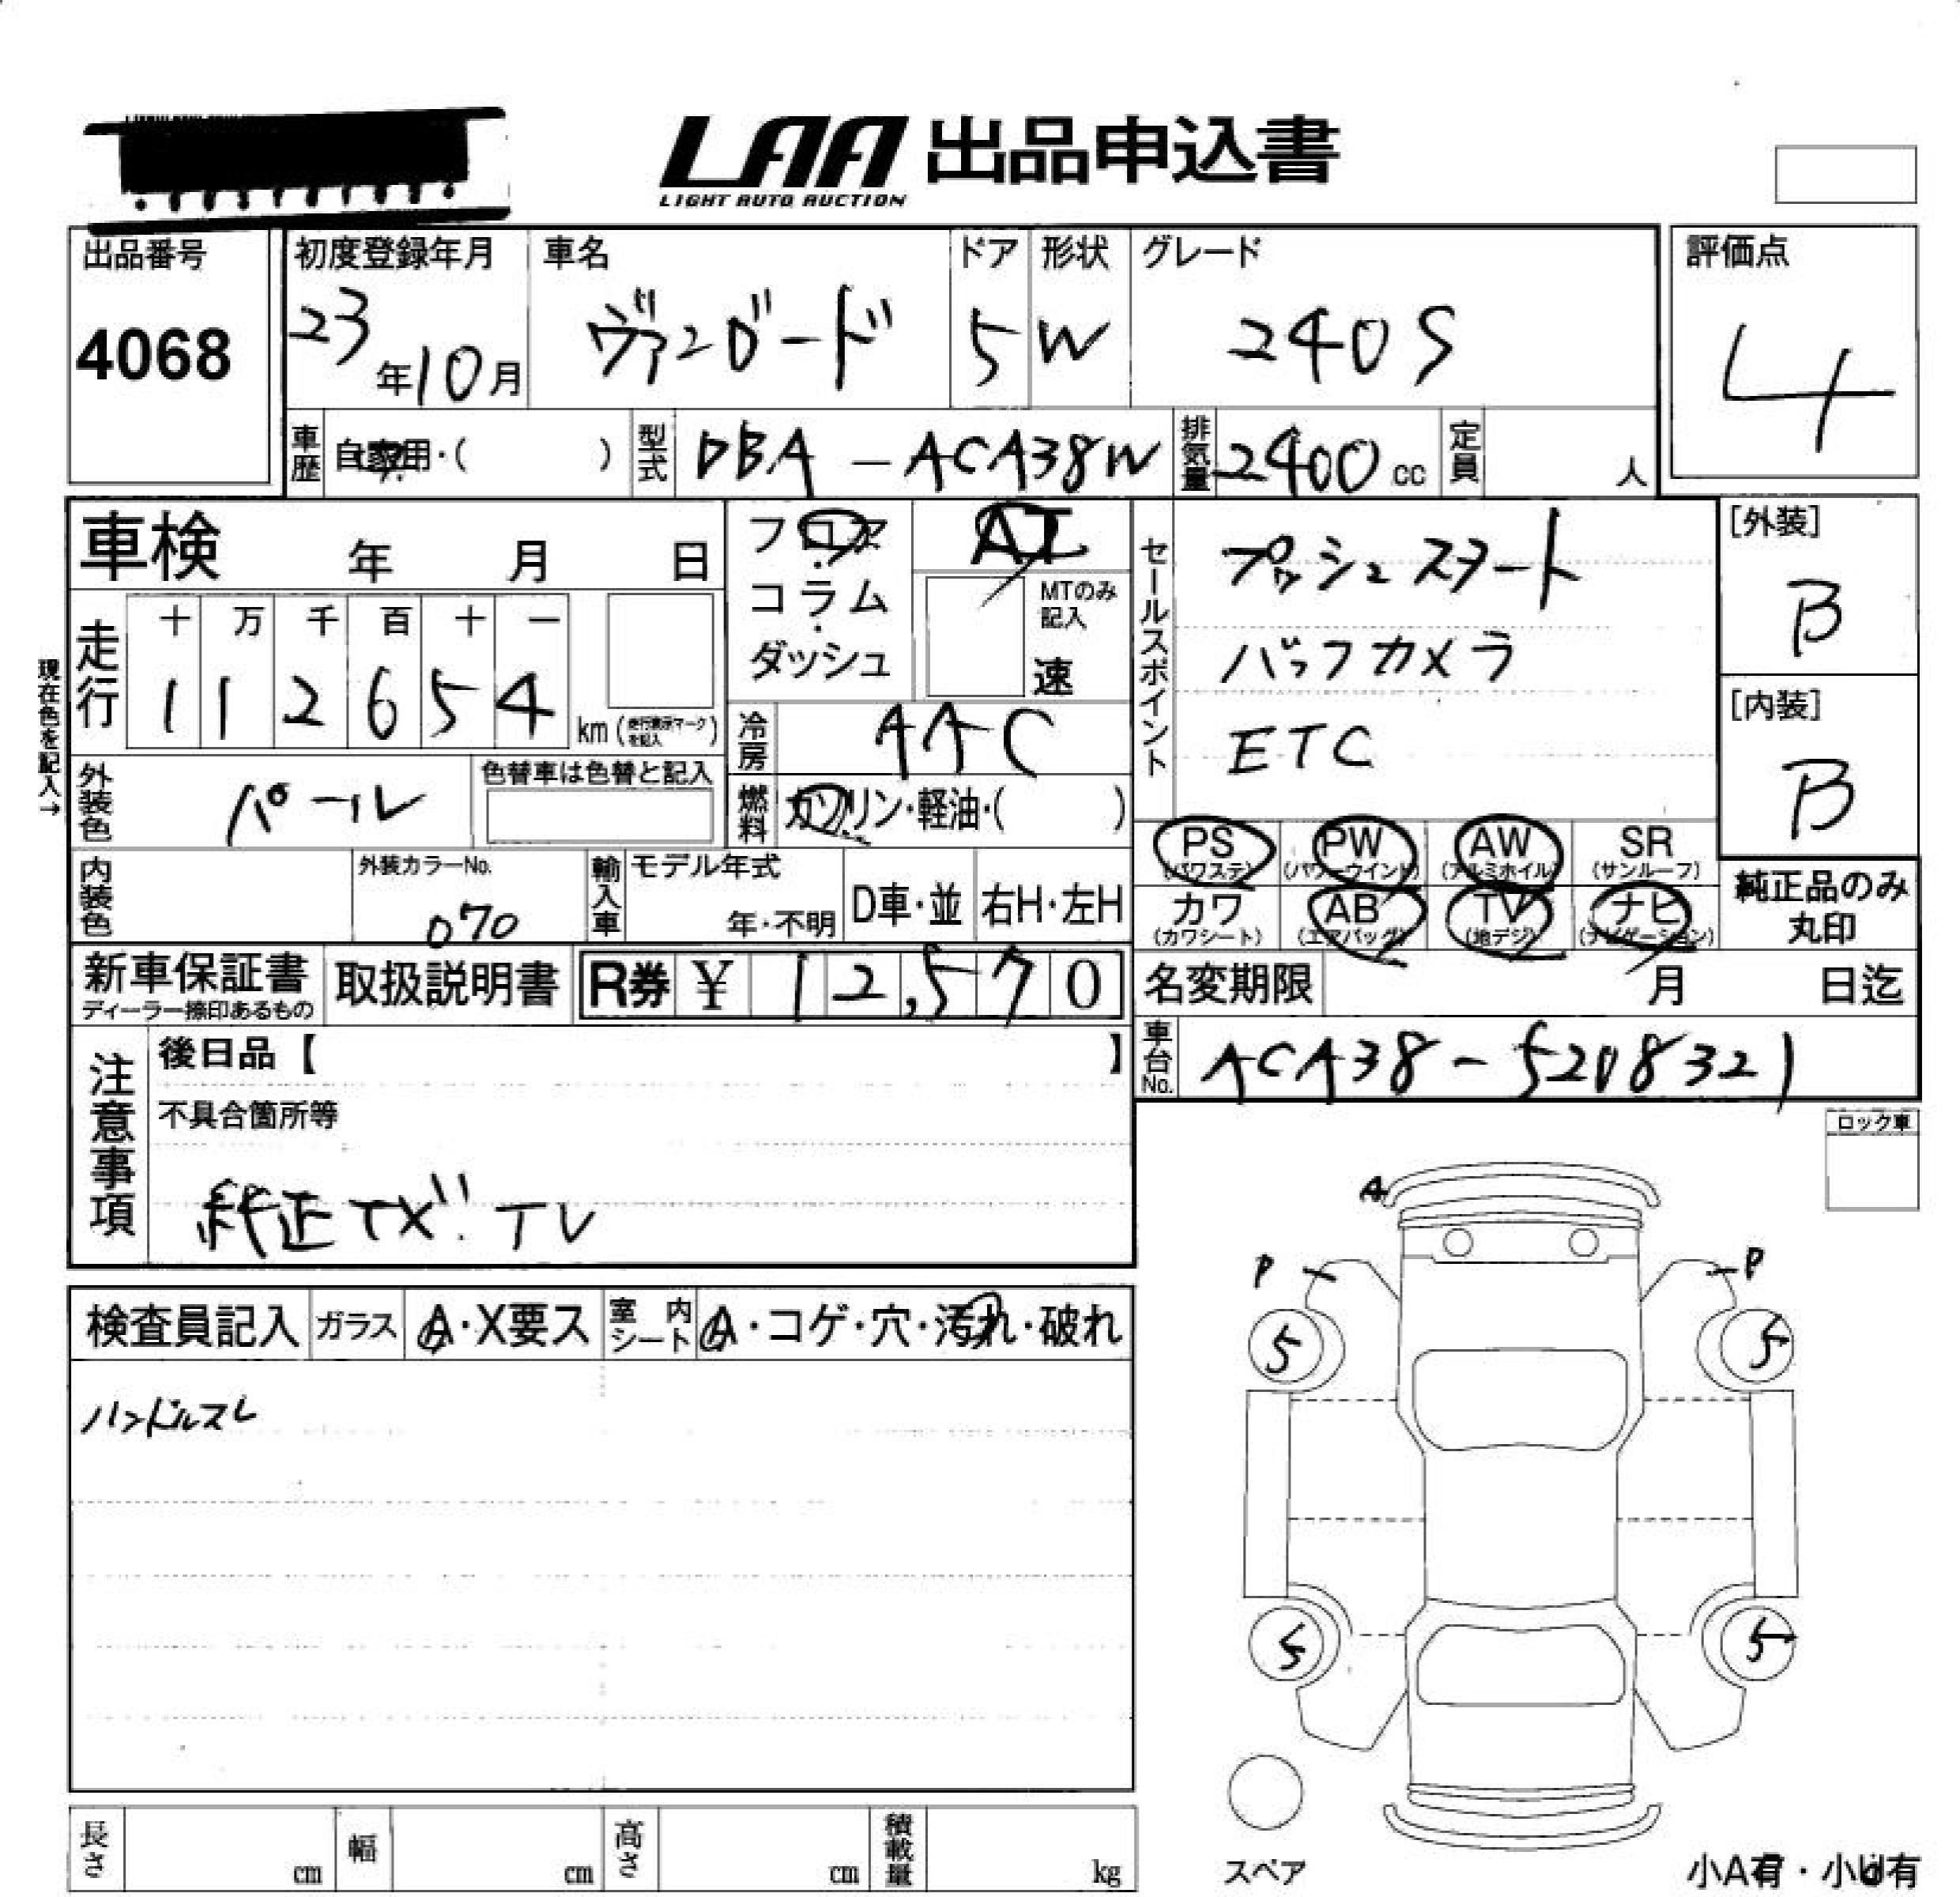 LAA 出品申込書
LIGHT AUTO AUCTION
出品番号
4068
初度登録年月
23年10月
車名
ヴァンガード
ドア
5
形状
W
グレード
240S
評価点
4
車歴 自家用・( )
型式 DBA-ACA38W
排気量 2400 cc
定員 人
車検 年 月 日
走行
十 万 千 百 十 一
1 1 2 6 5 4 km (走行表示マークを記入)
現在色を記入→
外装色 パール
色替車は色替と記入
内装色
外装カラーNo.
070
フロア・コラム・ダッシュ
AT
MTのみ記入
速
冷房 AAC
燃料 ガソリン・軽油・( )
輸入車
モデル年式
年・不明
D車・並 右H・左H
セールスポイント
プッシュスタート
バックカメラ
ETC
[外装]
B
[内装]
B
PS (パワステ) PW (パワーウインド) AW (アルミホイル) SR (サンルーフ)
カワ (カワシート) AB (エアバッグ) TV (地デジ) ナビ (ナビゲーション)
純正品のみ丸印
新車保証書
ディーラー捺印あるもの
取扱説明書
R券 ¥ 12,570
名変期限 月 日迄
車台No. ACA38-5208321
注意事項
後日品【 】
不具合箇所等
純正 TV
ロック車
検査員記入 ガラス A・X要ス 室内シート A・コゲ・穴・汚れ・破れ
ハンドルスレ
A
P P
5 5
5 5
スペア
小A有・小U有
長さ cm 幅 cm 高さ cm 積載量 kg